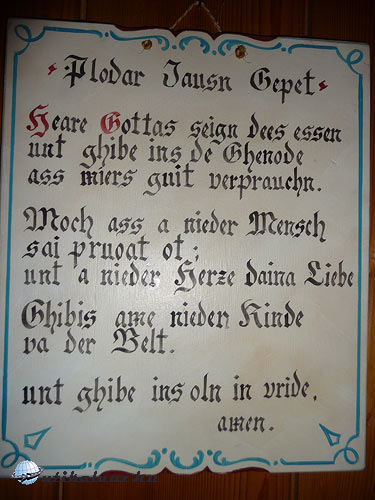 Plodar Jausn Gepet
Heare Gottas seign dees essen
unt ghibe ins de Ghenode
ass miers guit verprauchn.
Moch ass a nieder Mensch
sai pruoat ot;
unt a nieder Herze daina Liebe
Ghibis ame nieden Kinde
va der Belt.
unt ghibe ins oln in vride.
amen.